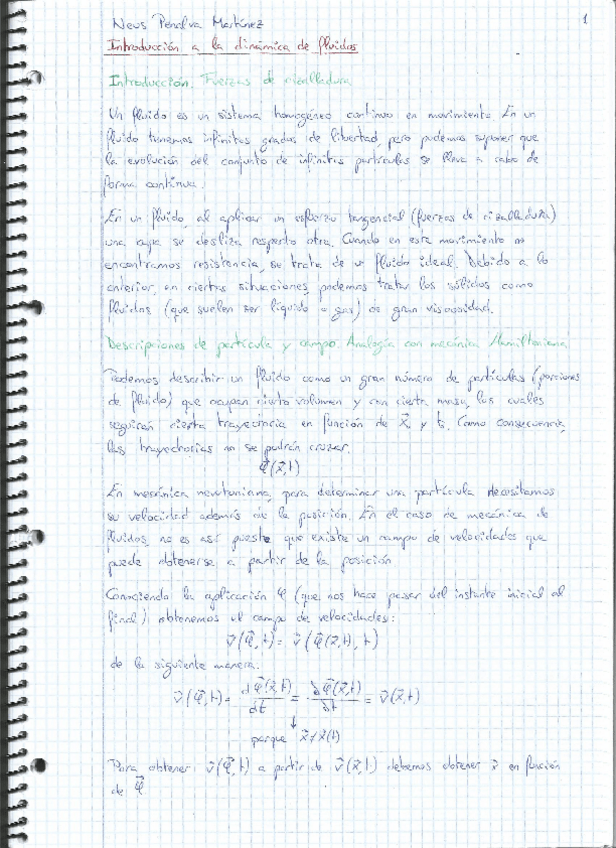 Neus Penalva Martínez
1
Introducción a la dinámica de fluidos
Introducción. Fuerzas de cizalladura
Un fluido es un sistema homogéneo continuo en movimiento. En un
fluido tenemos infinitos grados de libertad, pero podemos suponer que
la evolución del conjunto de infinitas partículas se lleva a cabo de
forma continua.
En un fluido, al aplicar un esfuerzo tangencial (fuerzas de cizalladura)
una capa se desliza respecto otra. Cuando en este movimiento no
encontramos resistencia, se trata de un fluido ideal. Debido a lo
anterior, en ciertas situaciones, podemos tratar los sólidos como
fluidos (que suelen ser líquido o gas) de gran viscosidad.
Descripciones de partícula y campo. Analogía con mecánica Hamiltoniana
Podemos describir un fluido como un gran número de partículas (porciones
de fluido) que ocupan cierto volumen y con cierta masa, los cuales
seguirán cierta trayectoria en función de x⃗ y t. Como consecuencia,
las trayectorias no se podrán cruzar.
φ⃗(x⃗,t)
En mecánica newtoniana, para determinar una partícula necesitamos
su velocidad además de la posición. En el caso de mecánica de
fluidos, no es así puesto que existe un campo de velocidades que
puede obtenerse a partir de la posición
Conociendo la aplicación φ (que nos hace pasar del instante inicial al
final) obtenemos el campo de velocidades:
v⃗(φ⃗,t) = v⃗(φ⃗(x⃗,t),t)
de la siguiente manera:
v⃗(φ⃗,t) = dφ⃗(x⃗,t)/dt = ∂φ⃗(x⃗,t)/∂t = v⃗(x⃗,t)
↓
porque x⃗≠x⃗(t)
Para obtener v⃗(φ⃗,t) a partir de v⃗(x⃗,t) debemos obtener x⃗ en función
de φ⃗